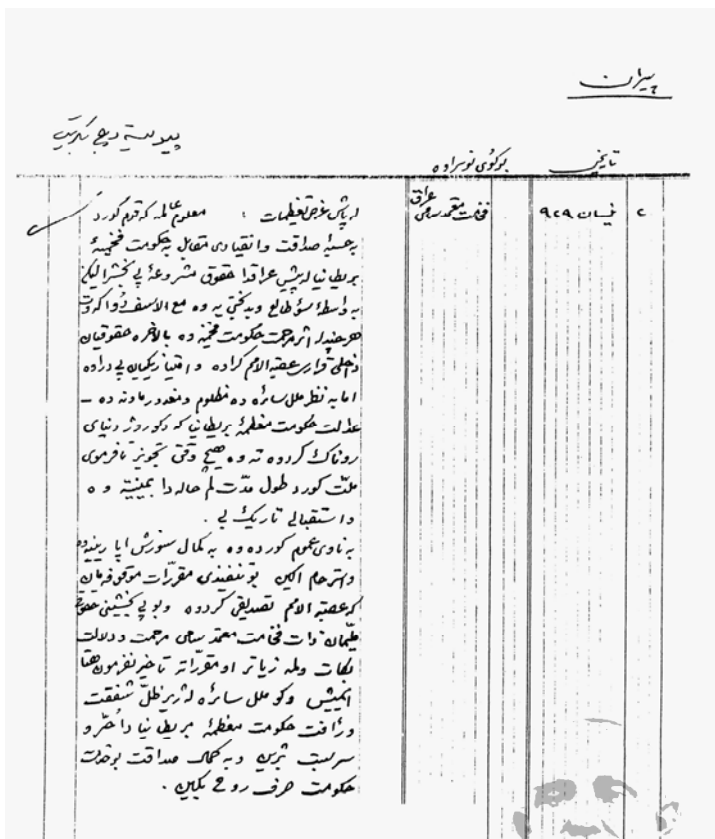 پیران
پیویستە دەرج بکریت
تاریخی
بو کوی نوسراوە
٢
نیسان ٩٢٩
فخامت معتمد سامی عراق
لە پاش عرض تعظیمات : معلوم عالمە کە قوم کورد
بە حسیە صداقت و انقیادی مقابل بە حکومت فخیمۀ
بریطانیا لە پیش عراقدا حقوق مشروعۀ پی بخشرا لیکن
بە واسطۀ سؤ طالع و بدختی یە وە مع الاسف دوا کەوت
هرچند لە اثر مرحمت حکومت فخیمە وە بالآخرە حقوقیان
داخلی قراری عصبة الامم کراوە و امتیازیکیان پی دراوە
اما بە نظر ملل سائرە وە مظلوم و مغدور ماونە وە –
عدالت حکومت معظمۀ بریطانیا کە وکو روژ دنیای
روناک کردوە تە وە هیچ وقتی تجویز نافرموی
ملت کورد طول مدت لم حالە دا بمینیتە وە
و استقبالی تاریک بی .
بە ناوی عموم کوردەوە بە کمال سوزش
و استرحام اکین بو تنفیذی مقررات موقوفەمان
کە عصبة الامم تصدیقی کردوە وبو پی بخشینی حقوق
ذات فخامت معتمد سامی مرحمت و دلالت
بکات ولمە زیاتر او مقرراتە تأخیر نفرمون هتا
ایمیش وکو ملل سائرە لە ژیر ظل شفقت
و رأفت حکومت معظمۀ بریطانیا دا حر و
سربست بژین وبە کمال صداقت بو خدمت
حکومت صرف روح بکاین .